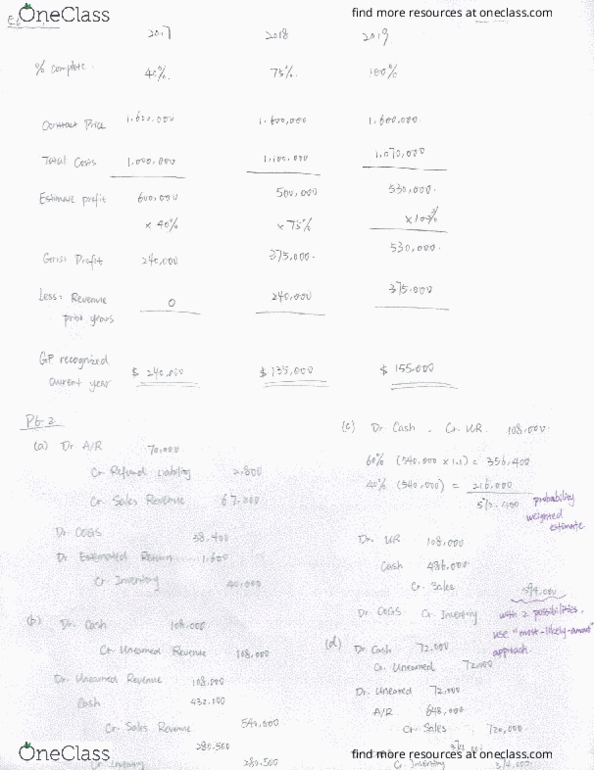 OneClass
find more resources at oneclass.com
2017 2018 2019
% complete. 40%. 75%. 100%
Contract Price 1.600.000 1.600,000 1.600.000
Total Costs 1.000.000 1.100.000 1.070.000
Estimate profit 600,000 500,000 530,000.
x 40% x 75% x100%
Gross Profit 240,000 375.000. 530,000.
Less: Revenue 0 240,000 375.000
prior years
GP recognized $ 240.000 $ 135,000 $ 155.000
current year
P6-2
(a) Dr A/R 70,000
Cr Refund Liability 2,800
Cr Sales Revenue 67.200
Dr COGS 38.400
Dr Estimated Return 1.600
Cr Inventory 40,000
(b) Dr. Cash 108.000
Cr. Unearned Revenue 108,000
Dr. Unearned Revenue 108,000
Cash 432.000
Cr. Sales Revenue 540,000
280.500
Cr. Inventory 280.500
(c) Dr. Cash . Cr. UR. 108.000.
60% (540.000 x 1.1) = 356,400
40% (540,000) = 216,000
572.400
probability
weighted
estimate
Dr. UR 108,000
Cash 486,000
Cr. Sales 594,000
Dr. COGS Cr. Inventory
with 2 possibilities,
use "most-likely-amount"
approach.
(d) Dr. Cash 72.000
Cr. Unearned 72.000
Dr. Unearned 72,000
A/R 648,000
Cr. Sales 720,000.
Cr. Inventory
OneClass
find more resources at oneclass.com